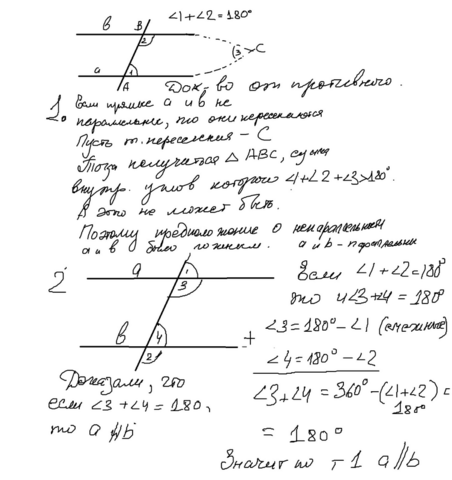 ∠1+∠2=180°
в B
2
3 C
а 1
A
Док-во от противного.
1. Если прямые а и в не
параллельные, то они пересекаются
Пусть т. пересечения - С
Тогда получится △ ABC, сумма
внутр. углов которого ∠1+∠2+∠3>180°.
А это не может быть.
Поэтому предположение о непараллельности
а и в было ложным. а и b - параллельны
2
а 1
3
в 4
2
Если ∠1+∠2=180°
то и ∠3+∠4=180°
+ ∠3=180°-∠1 (смежные)
∠4=180°-∠2
∠3+∠4=360°-(∠1+∠2)=
180°
=180°
Доказали, что
если ∠3+∠4=180,
то a∥b
Значит по т 1 a∥b